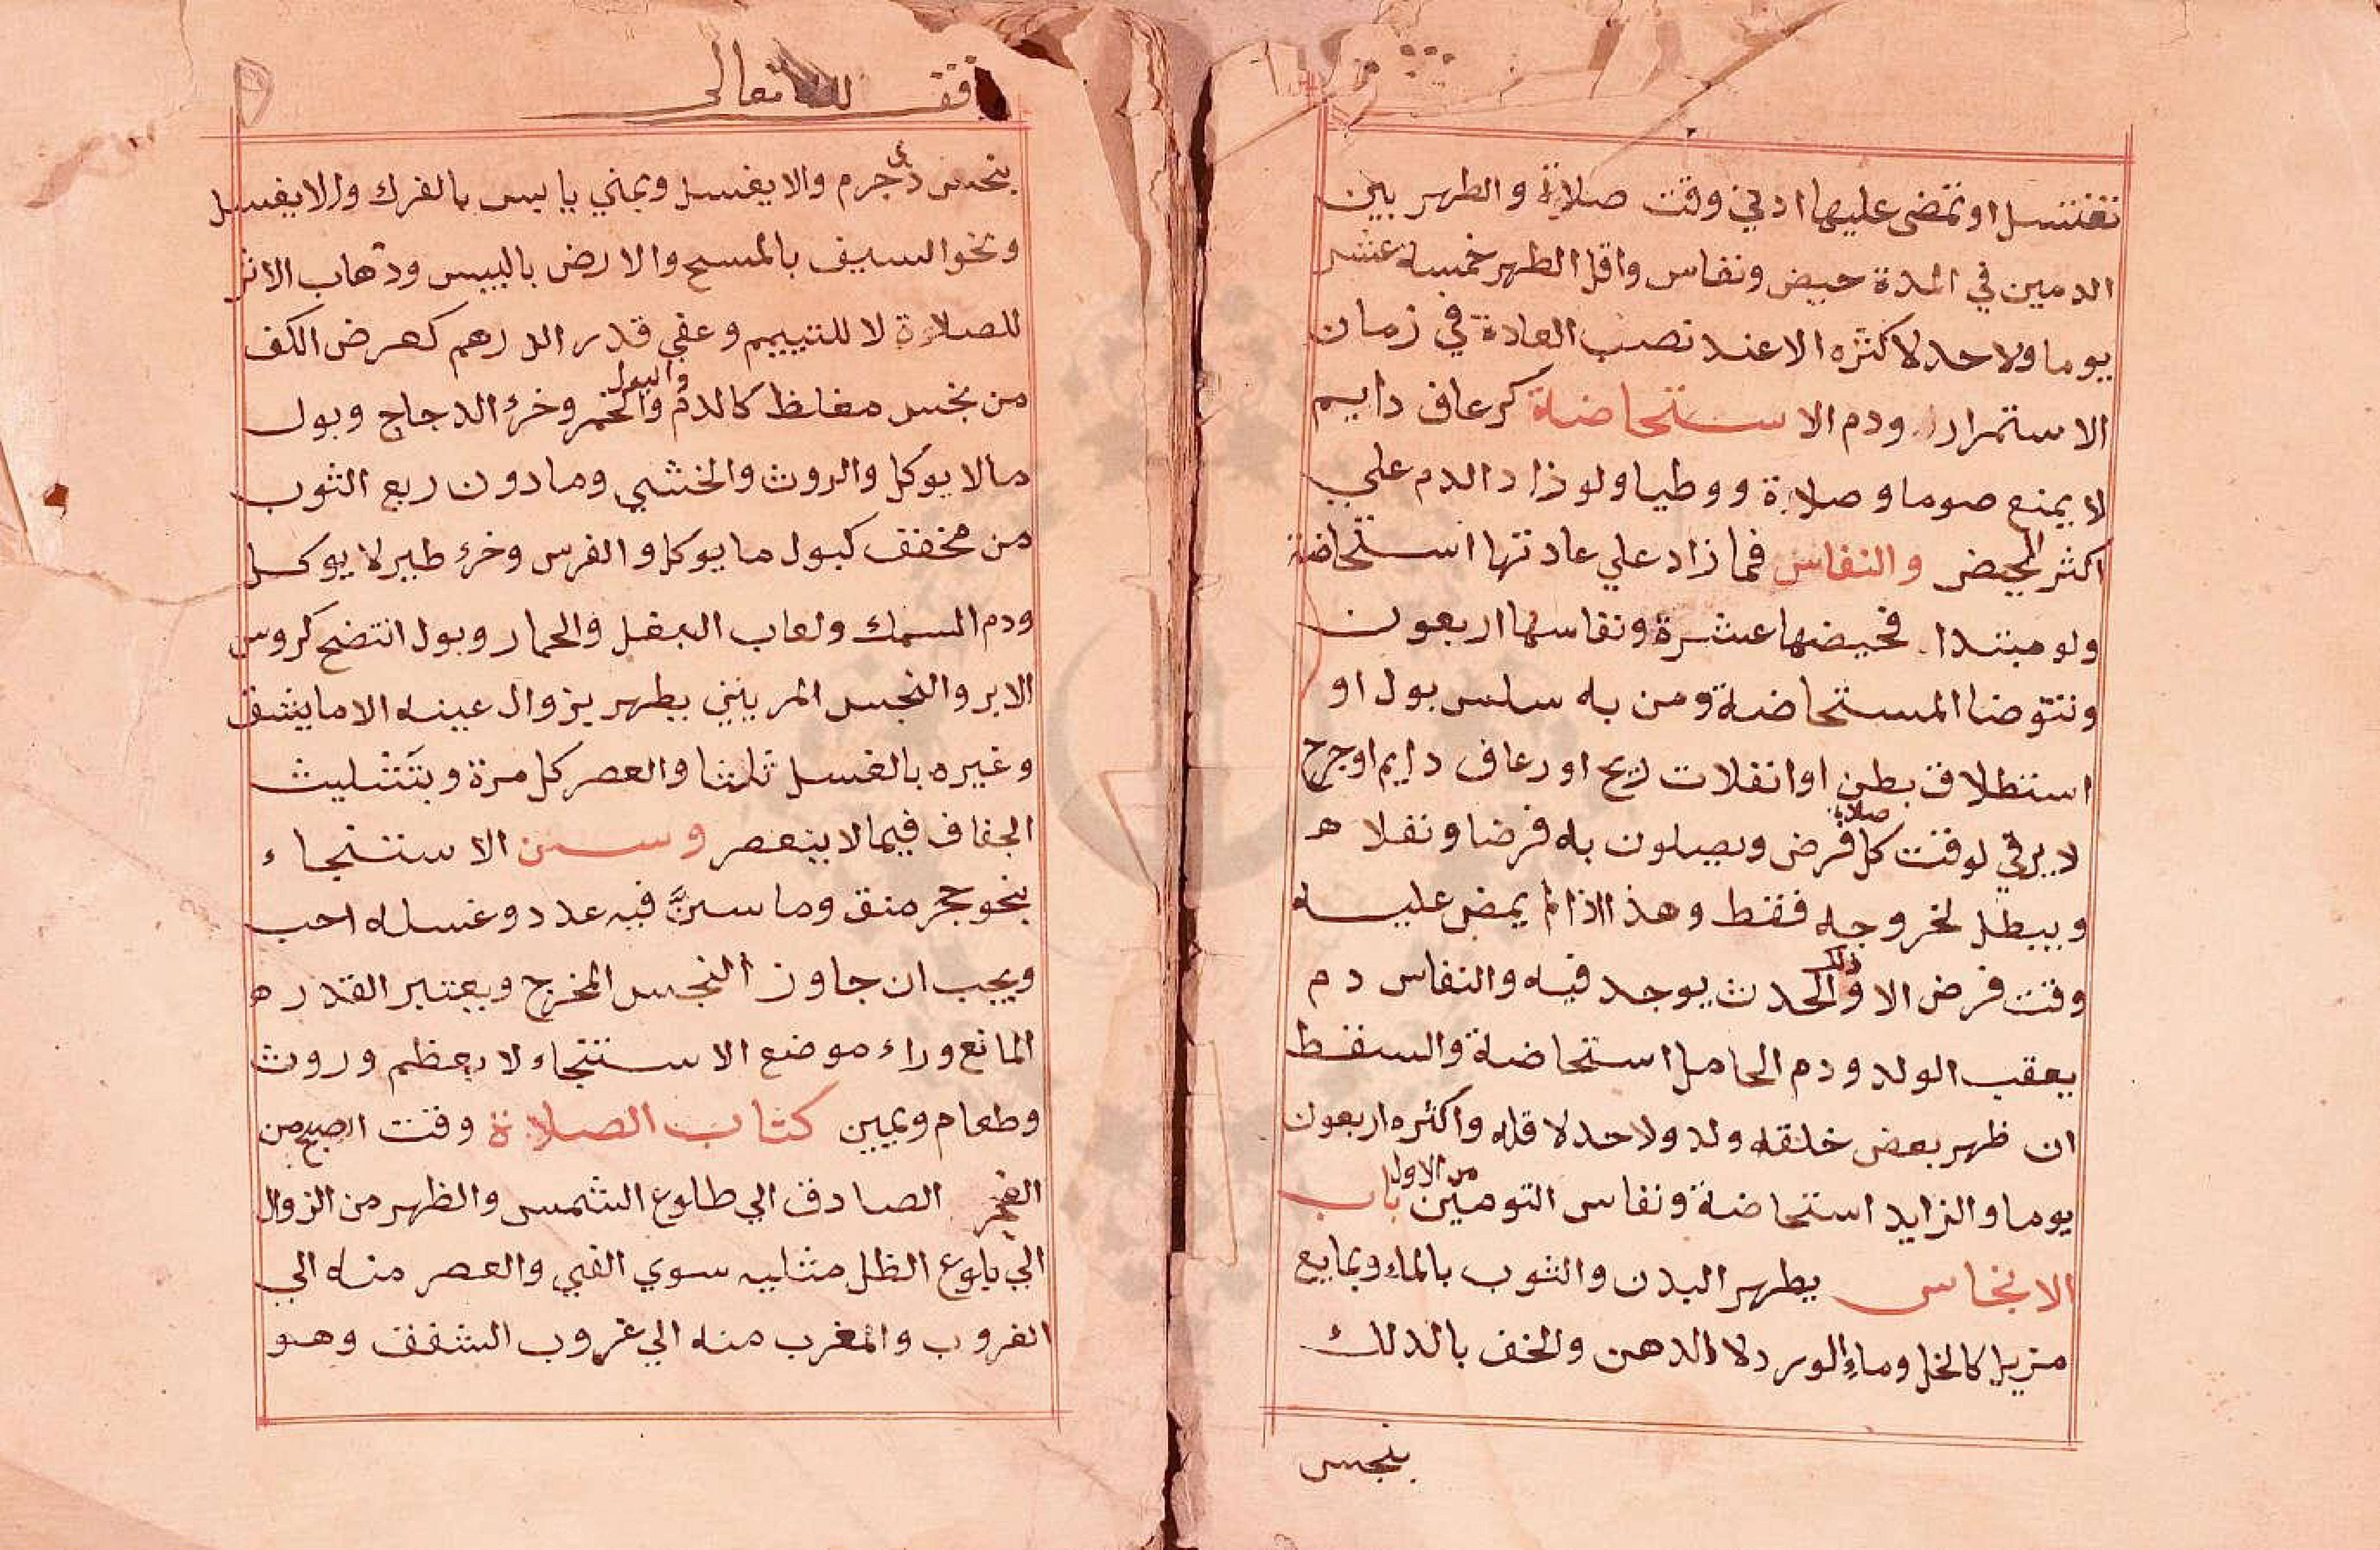 تغتسل او تمضى عليها ادني وقت صلاة والطهر بين
الدمين في المدة حيض ونفاس واقل الطهر خمسه عشر
يوما ولا حد لاكثره الا عند نصب العادة في زمان
الاستمرار ودم الاستحاضة كرعاف دايم
لا يمنع صوما وصلاة ووطيا ولو زاد الدم علي
اكثر الحيض والنفاس فما زاد علي عادتها استحاضة
ولو مبتدا فحيضها عشرة ونفاسها اربعون
وتتوضا المستحاضة ومن به سلس بول او
استطلاق بطن او انفلات ريح او رعاف دايم او جرح
لا يرقي لوقت كل صلاة فرض ويصلون به فرضا ونفلا ه
ويبطل لخروجه فقط وهذا اذا لم يمض عليه
وقت فرض الا وذلك الحدث يوجد فيه والنفاس دم
يعقب الولد ودم الحامل استحاضة والسقط
ان ظهر بعض خلقه ولد ولا حد لاقله واكثره اربعون
يوما والزايد استحاضة ونفاس التومين من الاول باب
الانجاس يطهر البدن والثوب بالماء وبمايع
مزيل كالخل وماء الورد لا الدهن والخف بالدلك
بنجس
وقف لله تعالى
بنجس ذي جرم والا يغسل وبمني يابس بالفرك والا يغسل
ونحو السيف بالمسح والارض باليبس وذهاب الاثر
للصلاة لا للتييمم وعفي قدر الدرهم كعرض الكف
من نجس مغلظ كالدم والبول والخمر وخرؤ الدجاج وبول
مالا يوكل والروث والخشي ومادون ربع الثوب
من مخفف كبول ما يوكل والفرس وخرء طير لا يوكل
ودم السمك ولعاب البغل والحمار وبول انتضح كروس
الابر والنجس المريني يطهر بزوال عينه الا ما يشق
وغيره بالغسل ثلثا والعصر كل مرة وبتثليث
الجفاف فيما لا ينعصر وسن الاستنجاء
بنحو حجر منق وما سن فيه عدد وغسله احب
ويجب ان جاوز النجس المخرج ويعتبر القدر ه
المانع وراء موضع الاستنجاء لا بعظم وروث
وطعام ويمين كتاب الصلاة وقت الصبح من
الفجر الصادق الي طلوع الشمس والظهر من الزوال
الي بلوغ الظل مثليه سوي الفي والعصر منه الي
الغروب والمغرب منه الي غروب الشفق وهو